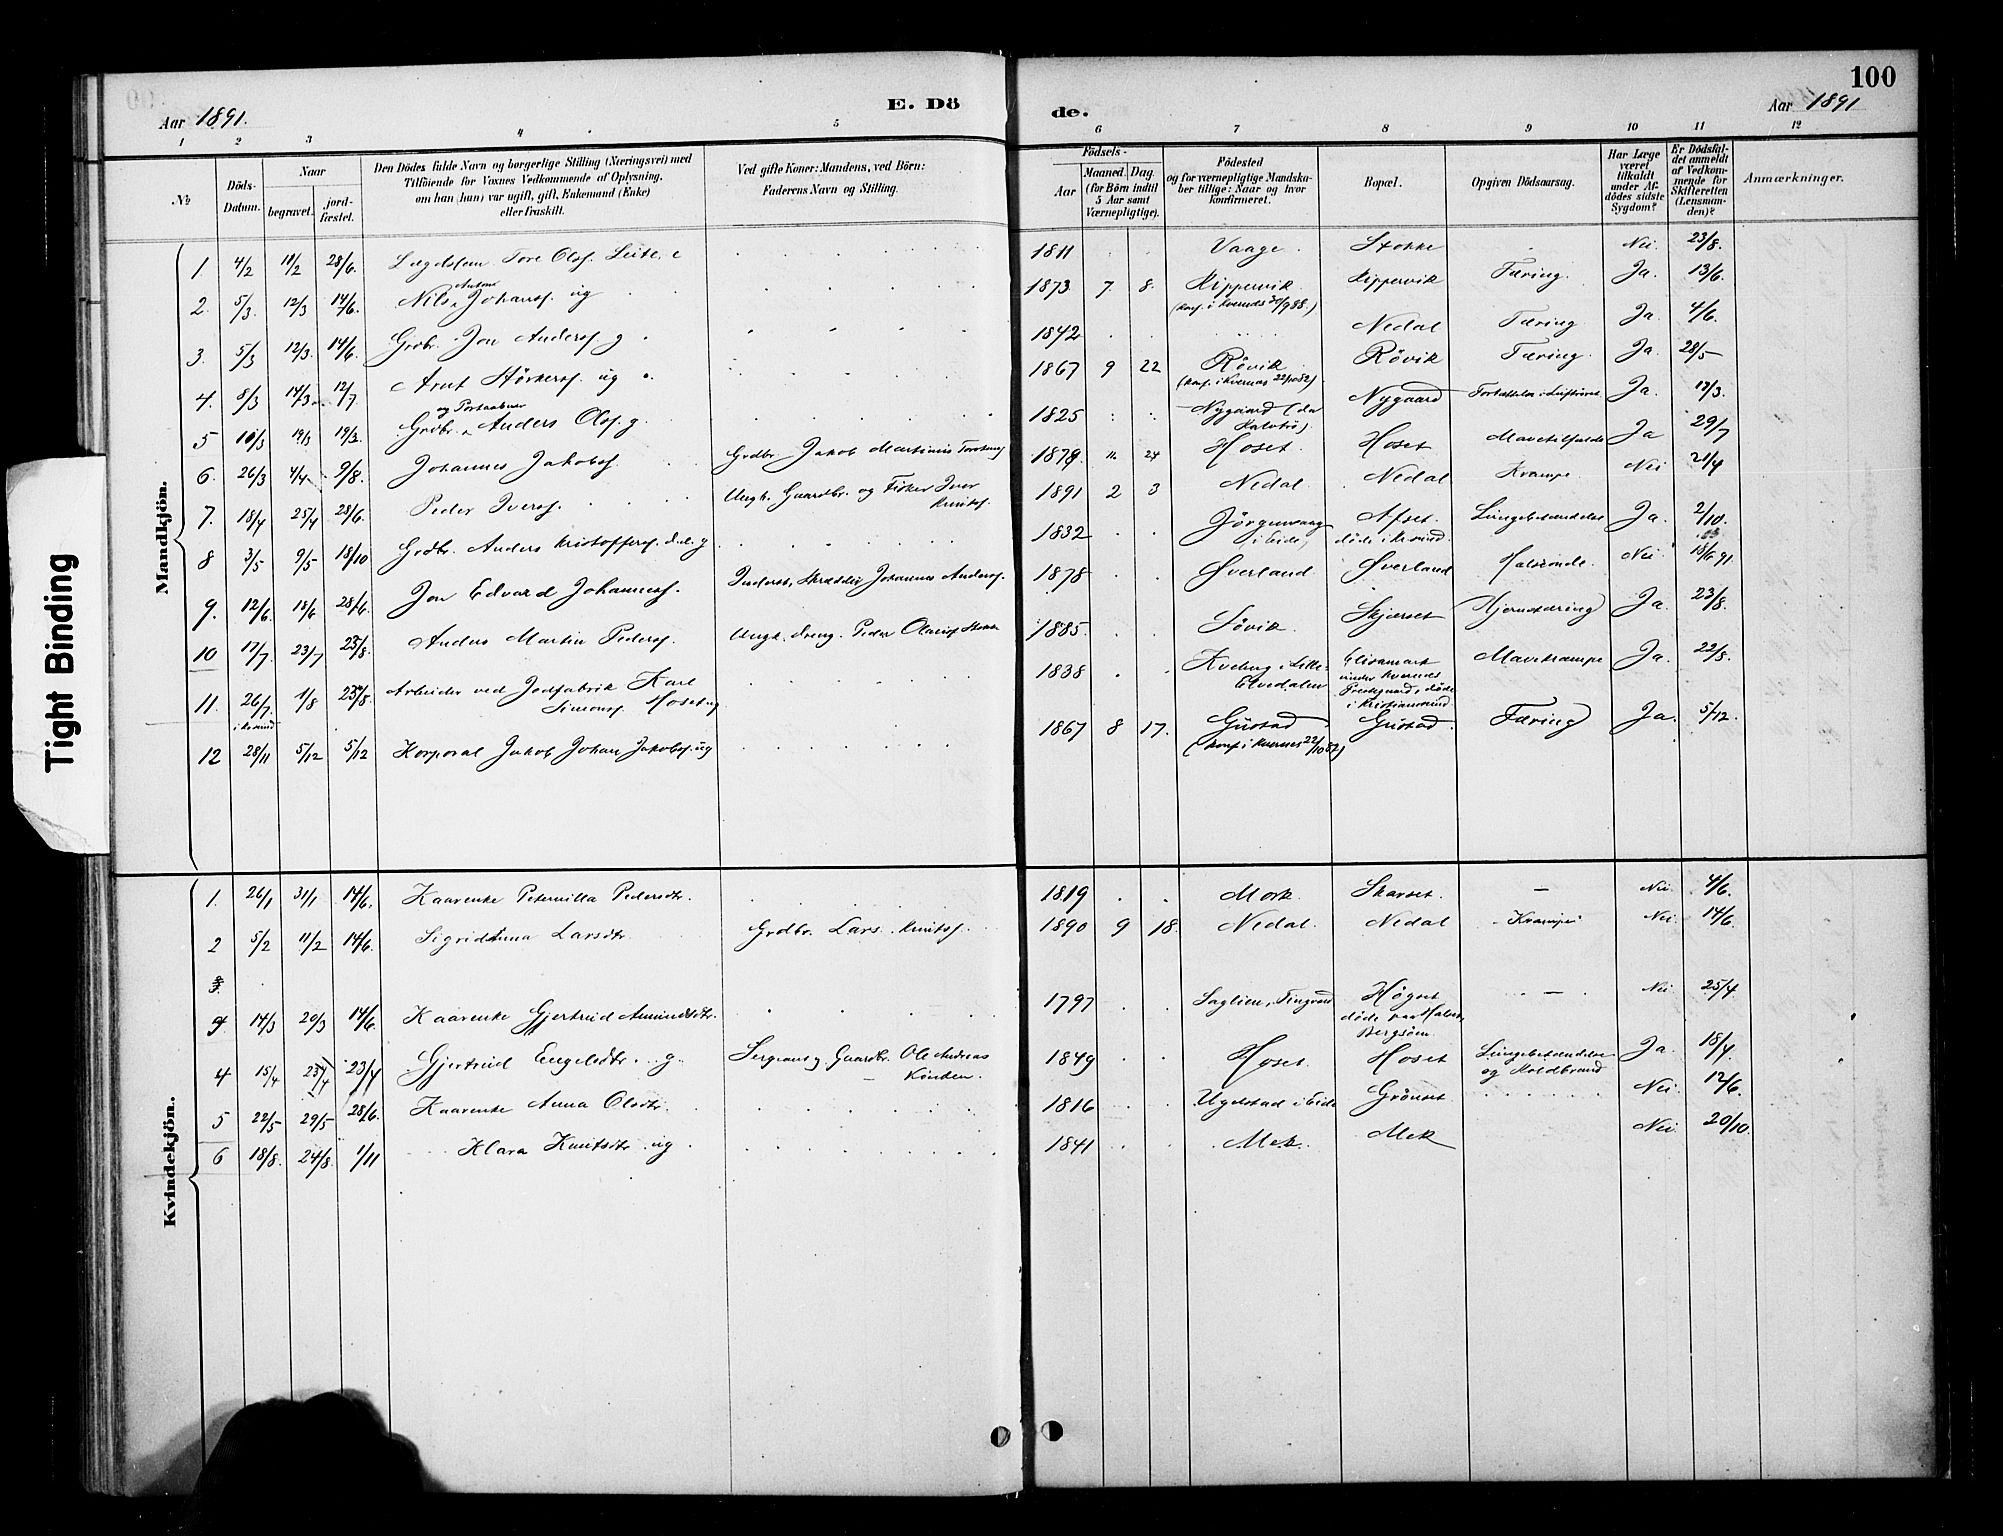 100
Aar 1891.
E. Dö
de.
Aar 1891
1 2 3 4 5 6 7 8 9 10 11 12
№
Döds-Datum.
Naar
begravet.
jord-fæstet.
Den Dödes fulde Navn og borgerlige Stilling (Næringsvei) med
Tilföiende for Voxnes Vedkommende af Oplysning,
om han (hun) var ugift, gift, Enkemand (Enke)
eller fraskilt.
Ved gifte Koner: Mandens, ved Börn:
Faderens Navn og Stilling.
Födsels-
Aar
Maaned. Dag.
(for Börn indtil
5 Aar samt
Værnepligtige).
Födested
og for værnepligtige Mandska-
ber tillige: Naar og hvor
konfirmeret.
Bopæl.
Opgiven Dödsaarsag.
Har Læge
været
tilkaldt
under Af-
dödes sidste
Sygdom?
Er Dödsfal-
det anmeldt
af Vedkom-
mende for
Skifteretten
(Lensman-
den)?
Anmærkninger.
Tight Binding
Mandkjön.
1. 4/2 11/2 28/6. Lægdslem Tore Olsf. Leite. e 1811 Vaage. Stokke Nei 23/8.
2. 5/3. 12/3 14/6. Nils Anton Johansf. ug 1873. 7. 8. Kippervik (konf. i Kvernes 30/9 88.) Kippervik Tæring. Ja. 13/6.
3. 5/3 12/3. 14/6. Grdbr. Jon Andersf. g 1842 Nedal Tæring Ja. 4/6.
4. 8/3 14/3 12/7 Arnt Störkersf. ug 1867 9 22 Rövik (konf. i Kvernes 22/10 82) Rövik Tæring. Ja. 28/5
5 10/3 19/3 19/3. Grdbr. og Anders Olsf. g. 1825 Nygaard Nygaard Ja. 17/3.
6. 26/3 4/4 9/8. Johannes Jakobsf. Grdbr. Jakob Martinus 1879 11. 24 Hoset. Hoset Mavetilfælde Ja 29/7
7. 18/4 25/4 28/6. Peder Iversf. Ungk. Gaardbr. og Fisker Iver Knutsf. 1891 2 3 Nedal Nedal Krampe Nei 21/4
8 3/5 9/5 18/10 Grdbr. Anders Kristoffersf. g 1832 Jörgenvaag i Eide, döde i Krsund. Lungebetændelse Ja. 2/10.
9. 12/6. 18/6 28/6. Jon Edvard Johannesf. Inderst, Skrædder Johannes Andersf. 1878 Øverland Øverland Halsonde. Nei 18/6 91
10 17/7 23/7 23/8. Anders Martin Pedersf. Ungk. Dreng. Peder 1885. Sövik. Skjerset Hjernetæring Ja. 23/8.
11. 26/7. i Krsund 1/8 23/8. Arbeider ved Jodfabrik Karl Simonsf. Hoset ug 1838 Kveberg i Lille-Elvedalen Elisamark under Kvernes Prestegaard, döde i Kristiansund Mavekrampe Ja. 22/8.
12 28/11 5/12 5/12 Korporal Jakob Johan Jakobsf. ug 1867 8 17. Gustad (konf. i Kvernes 22/10 82) Gustad Tæring Ja. 5/12.
Kvindekjön.
1. 26/1 31/1 14/6. Kaarenke Peternilla Pedersdtr. 1819 Mork Skarset. — Nei. 4/6.
2 5/2 11/2 14/6. Sigrid Anna Larsdtr. Grdbr. Lars Knutsf. 1890 9 18. Nedal. Nedal Krampe Nei. 14/6.
3.
14/3 20/3 14/6 Kaarenke Gjertrud Amundsdtr. 1797 Saglien, Tingvold Högset döde paa Bergsöen — Nei 25/4
4 15/4 23/4 23/4 Gjertrud Engelsdtr. g. Sergeant g Gaardbr. Ole Andreas 1849 Hoset. Hoset Lungebetændelse og Koldbrand Ja. 18/4.
5 22/5 29/5 28/6. Kaarenke Anna Olsdtr. 1816 Ugelstad i Eide Grönset Nei. 12/6.
6 18/8. 24/8. 1/11 Klara Knutsdtr ug 1841 Mek. Mek Nei. 20/10.